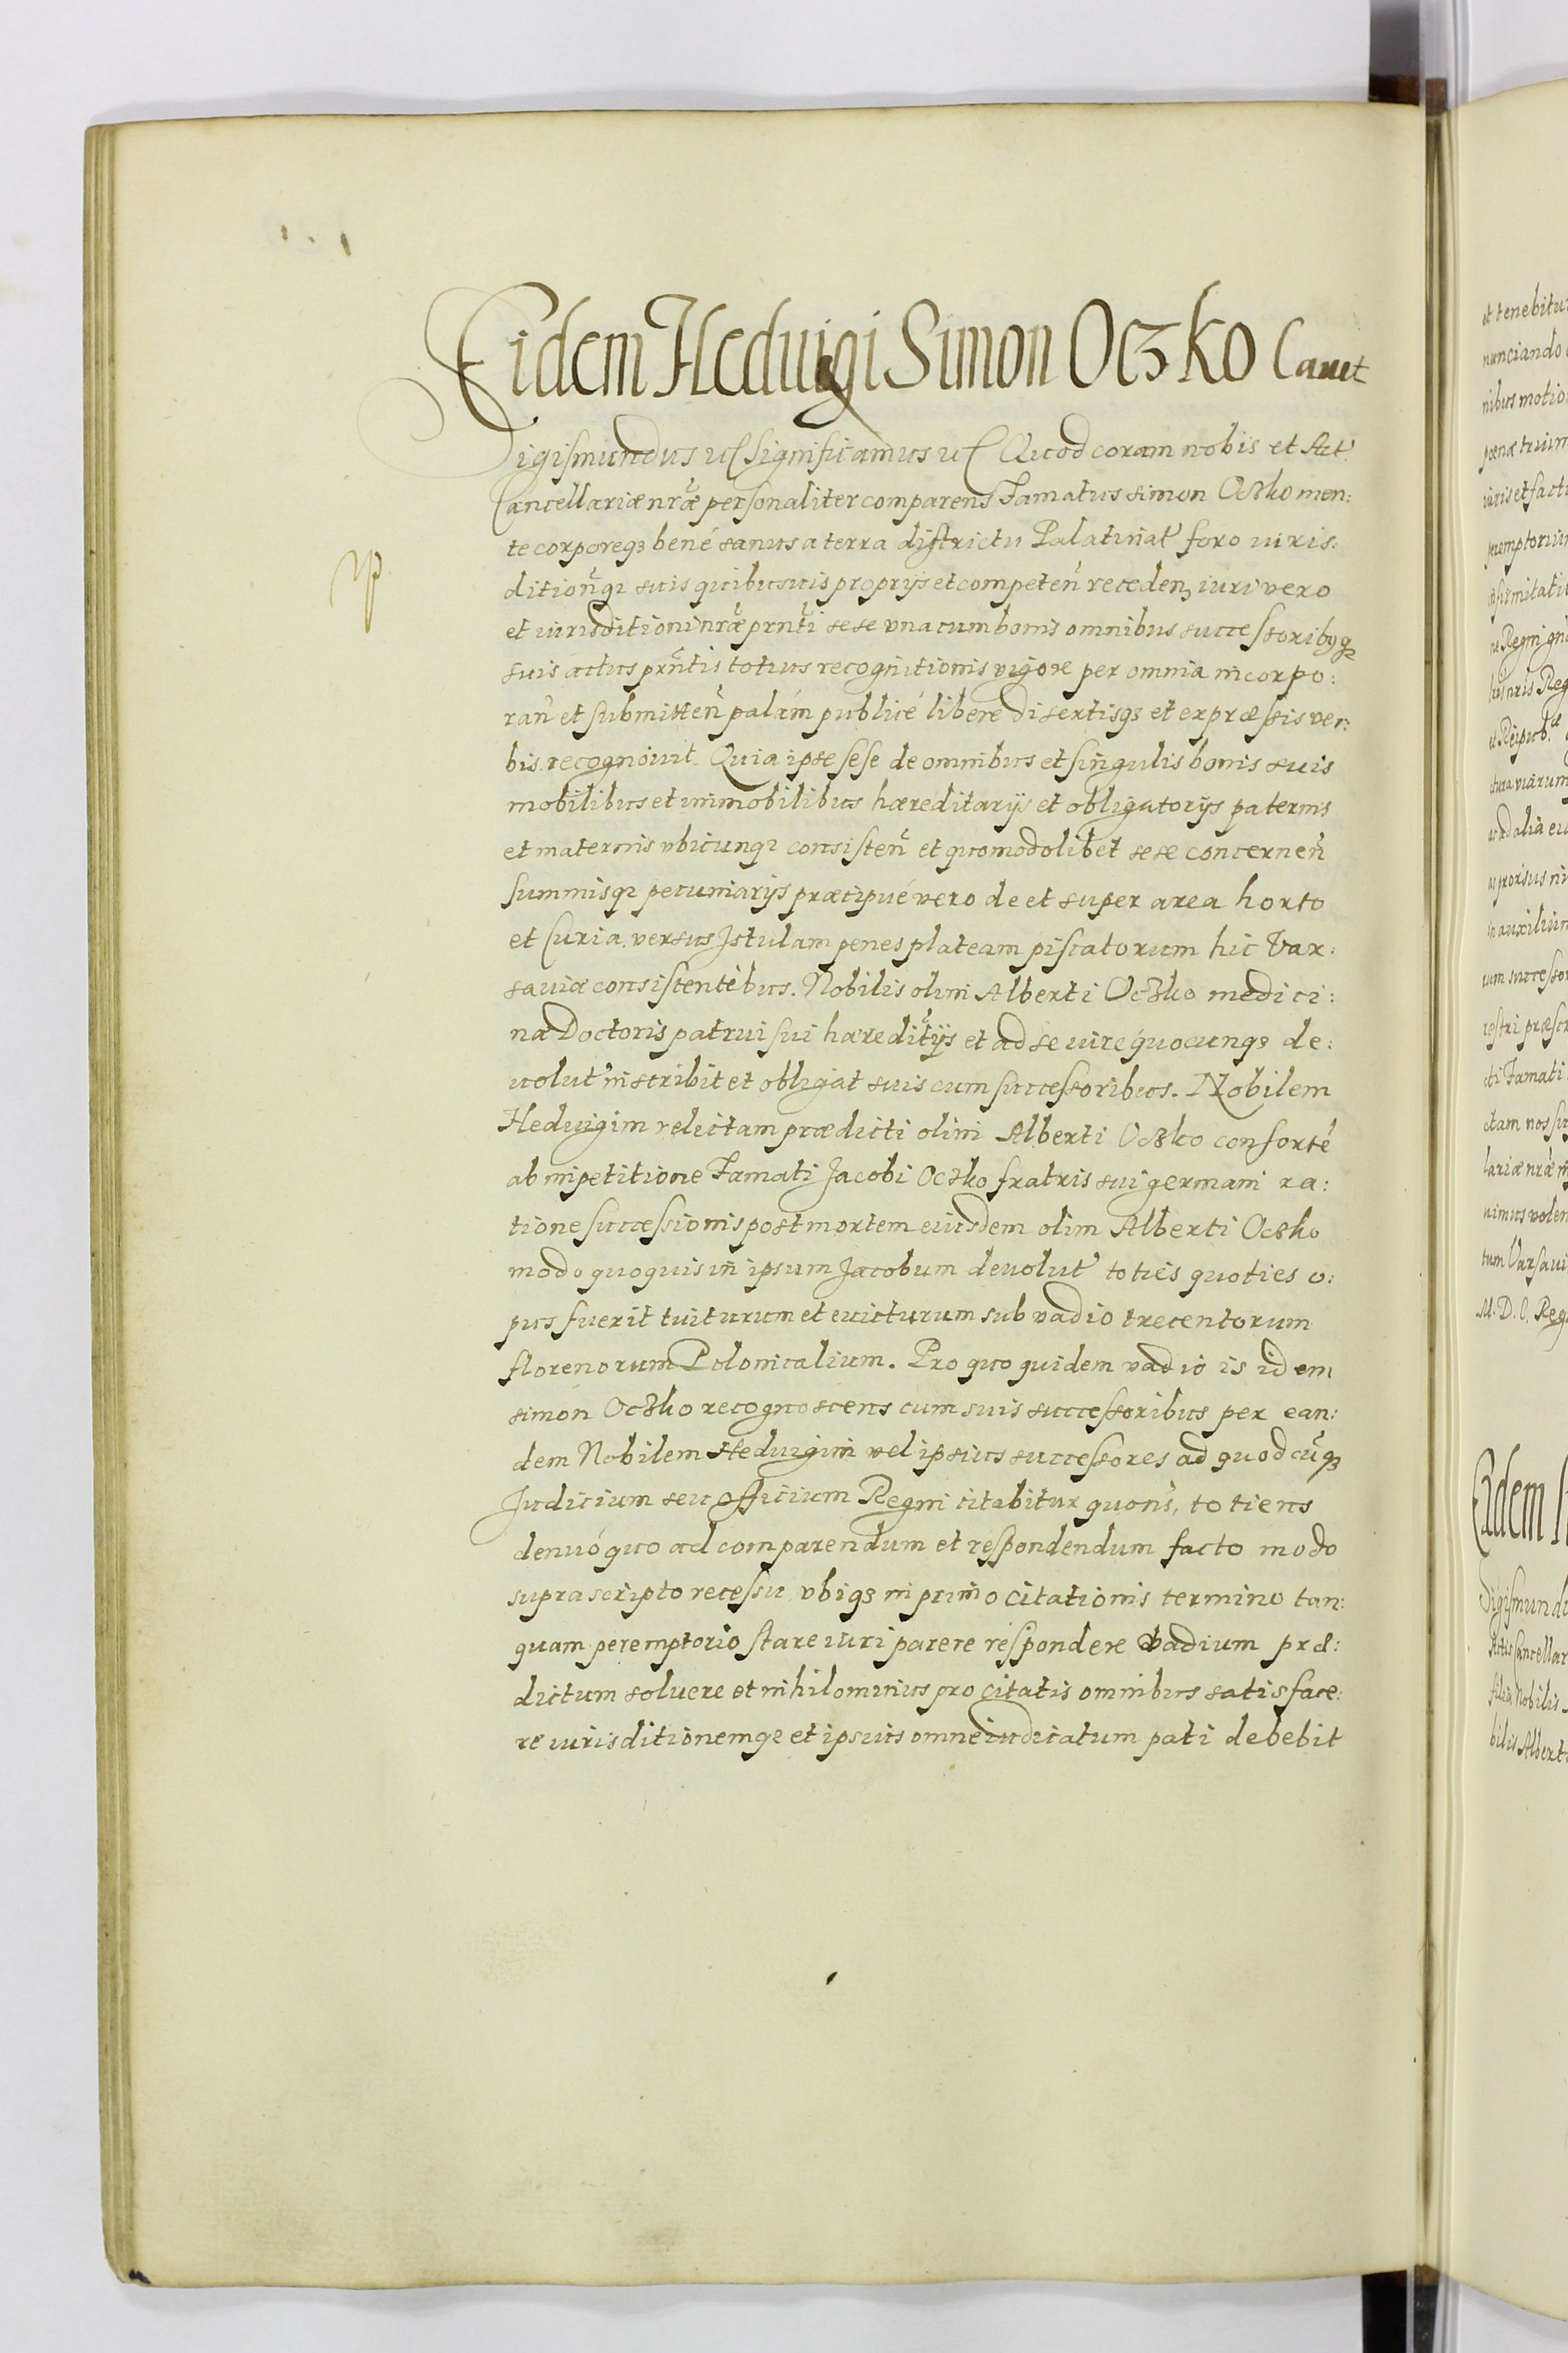 Eidem Heduigi Simon Oczko Cauet
Sigismundus uc Significamus uc Quod coram nobis et Act̃
Cancellariæ nr̃æ personaliter comparens Famatus Simon Oczko men:
te corporeq3 bené sanus a terra districtu Palatinat̃ foro iuris:
dition̄q3 suis quibusuis proprijs et competen̄ receden, iuri vero
et iurisditioni nr̃æ prn̄ti sese vna cum bonis omnibus successoribq3
suis actus prn̄tis totius recognitionis vigore per omnia incorpo:
ran̄ et submitten̄ palám publicé libere disertisq3 et expræssis ver:
bis recognouit. Quia ipse sese de omnibus et singulis bonis suis
mobilibus et immobilibus hæreditarijs et obligatorijs paternis
et maternis vbicunq3 consisten̄ et quomodolibet sese concernen̄
summisq3 pecuniarijs præcipué vero de et super area horto
et Curia versus Istulam penes plateam piscatorum hic Var:
sauiæ consistentibus. Nobilis olim Alberti Oczko medici:
næ Doctoris patrui sui hæredit̃ijs et ad se iure quocunq3 de:
uolut̃ inscribit et obligat suis cum successoribus. Nobilem
Heduigim relictam prædicti olim Alberti Oczko consorté
ab impetitione Famati Jacobi Oczko fratris sui germani ra:
tione successionis post mortem eiusdem olim Alberti Oczko
modo quouis in ipsum Jacobum deuolut̃ toties quoties o:
pus fuerit tuiturum et euicturum sub vadio trecentorum
florenorum Polonicalium. Pro quo quidem vadio is idem
Simon Oczko recognoscens cum suis successoribus per ean:
dem Nobilem Heduigim vel ipsius successores ad quodcūq3
Judicium seu officium Regni citabitur quoñs, totiens
denuó quo ad comparendum et respondendum facto modo
suprascripto recessu vbiq3 in primo citationis termino tan:
quam peremptorio stare iuri parere respondere vadium præ:
dictum soluere et nihilominus pro citatis omnibus satisface:
re iurisditionemq3 et ipsius omne iudicatum pati debebit